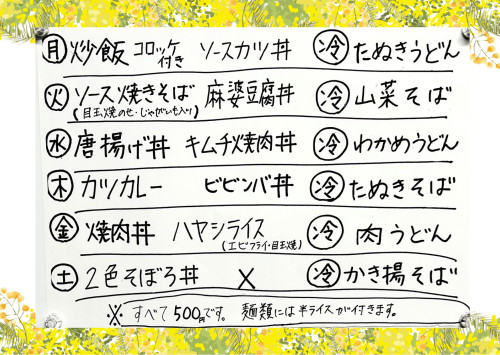 月 炒飯 コロッケ付き ソースカツ丼 冷 たぬきうどん
火 ソース焼きそば 麻婆豆腐丼 冷 山菜そば
(目玉焼のせ・じゃがいも入り)
水 唐揚げ丼 キムチ焼肉丼 冷 わかめうどん
木 カツカレー ビビンバ丼 冷 たぬきそば
金 焼肉丼 ハヤシライス 冷 肉うどん
(エビフライ・目玉焼)
土 2色そぼろ丼 × 冷 かき揚そば
※ すべて500円です。 麺類には半ライスが付きます。